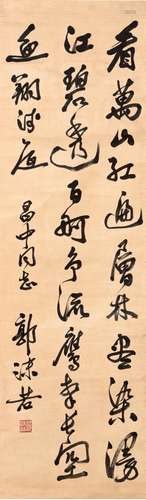 看萬山紅遍層林盡染漫
江碧透百舸爭流鷹擊長空
魚翔淺底
昌中同志 郭沫若